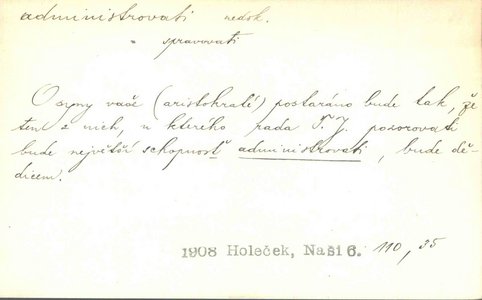 administrovati nedok.
" spravovati
O syny vaše (aristokraté) postaráno bude tak, že
ten z nich, u kterého rada T. J. pozorovati
bude největší schopnosť administrovati, bude dě-
dicem.
1908 Holeček, Naši 6. 110, 35